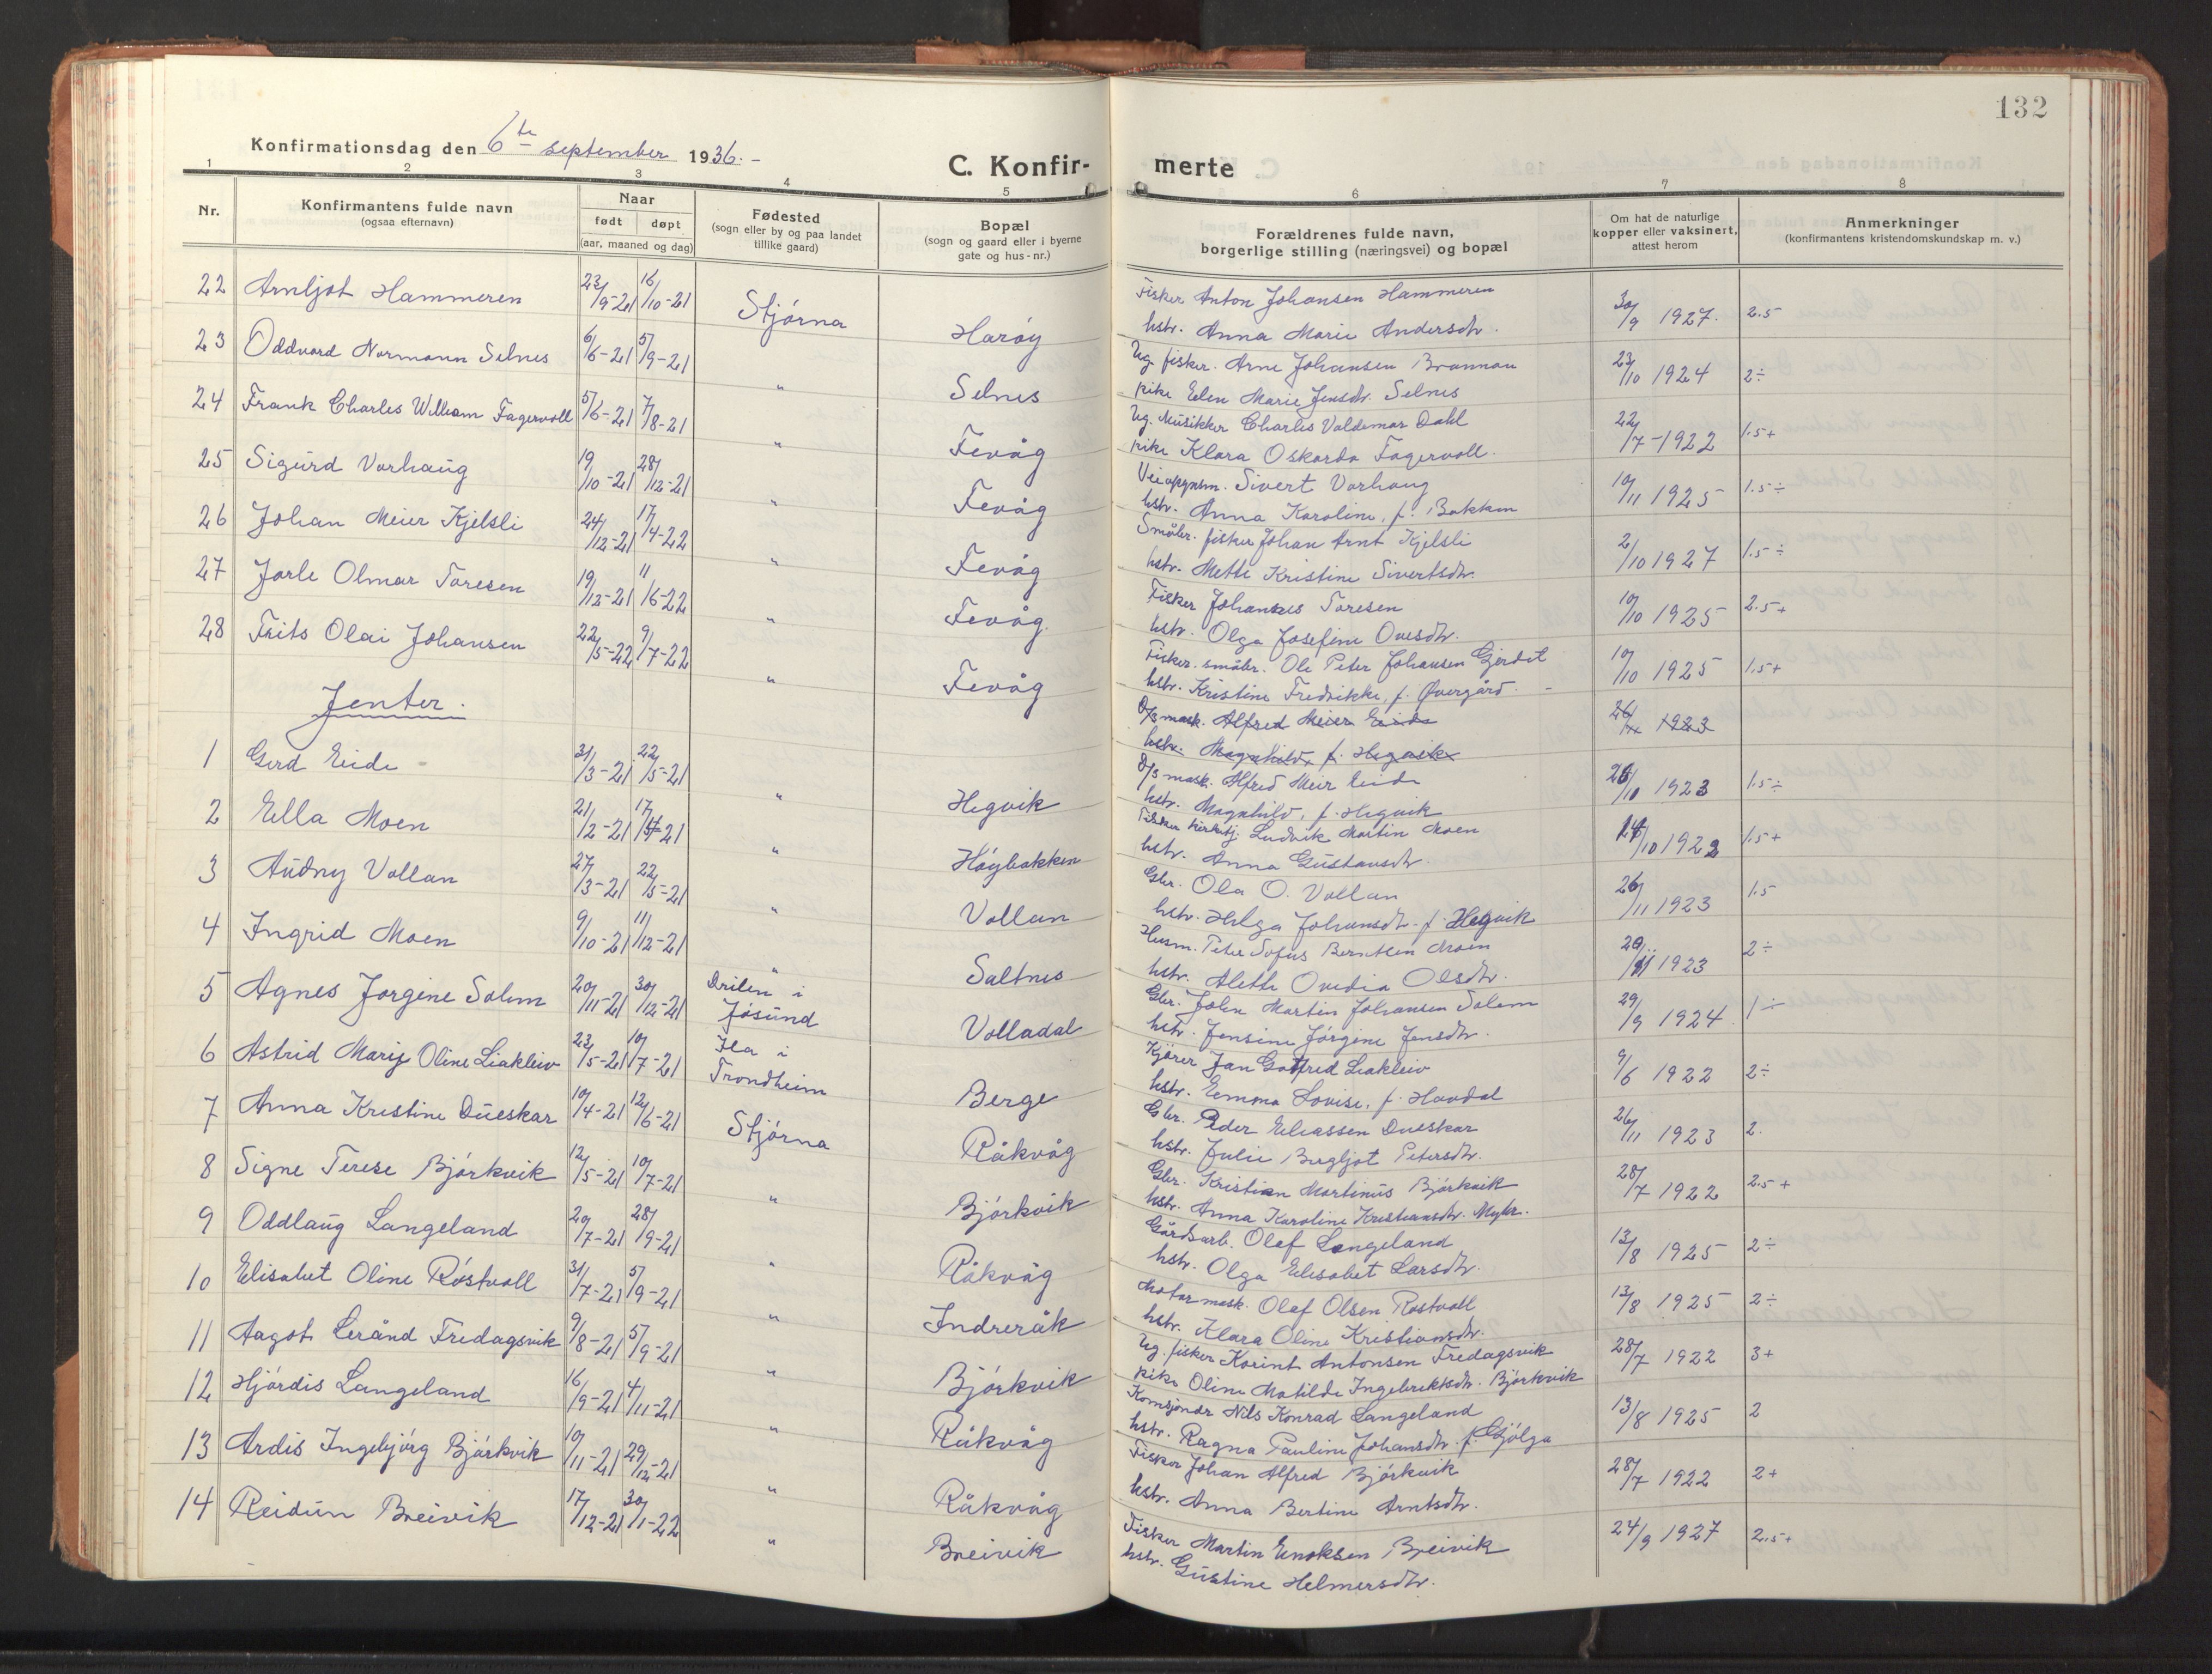 132
Konfirmationsdag den 6te september 1936. -
C. Konfir- merte
1 2 3 4 5 6 7 8
Nr.
Konfirmantens fulde navn
(ogsaa efternavn)
Naar
født døpt
(aar, maaned og dag)
Fødested
(sogn eller by og paa landet
tillike gaard)
Bopæl
(sogn og gaard eller i byerne
gate og hus-nr.)
Forældrenes fulde navn,
borgerlige stilling (næringsvei) og bopæl
Om hat de naturlige
kopper eller vaksinert,
attest herom
Anmerkninger
(konfirmantens kristendomskundskap m. v.)
22 Arnljot Hammeren 23/9-21 16/10-21 Stjórna Harøy Fisker Anton Johansen Hammeren 30/9 1927. 2.5
hstr. Anna Marie Andersdtr.
23 Oddvard Normann Selnes 6/6-21 5/9-21 " Selnes Ug. fisker. Arne Johansen Brannan 23/10 1924 2÷
pike Elen Marie Jensdtr. Selnes
24 Frank Charles William Fagervoll 5/6-21 7/8-21 " Fevåg Ug. Musikker Charles Valdemar Dahl 22/7-1922 1.5+
pike Klara Oskarda Fagervoll.
25 Sigurd Vorhaug 19/10-21 28/12-21 " Fevåg Veiopgnsm. Sivert Vorhaug 10/11 1925 1.5÷
hstr. Anna Karoline, f. Bakken
26 Johan Meier Kjelsli 24/12-21 17/4-22 " Fevåg Småbr. fisker Johan Arnt Kjelsli 2/10 1927 1.5÷
hstr. Mette Kristine Sivertsdtr.
27 Jarle Olmar Toresen 19/12-21 11/6-22 " Fevåg. Fisker Johannes Toresen 10/10 1925 2.5+
hstr. Olga Josefine Ovesdtr.
28 Frits Olai Johansen 22/5-22 9/7-22 " Fevåg Fisker. småbr. Ole Peter Johansen Gjerdet 10/10 1925 1.5+
hstr. Kristine Fredrikke, f. Øvergård. -
Jenter.
D/s mask. Alfred Meier Eide 1923
hstr. Magnhild, f. Hegvik
1 Gerd Eide 31/3-21 22/5-21 " Hegvik D/s mask. Alfred Meir Eide 26/10 1923 1.5÷
hstr. Magnhild, f. Hegvik
2 Ella Moen 21/2-21 17/4-21 " Høybakken Fisker kirketj. Ludvik Martin Moen 1.5+
hstr. Anna Gustavsdtr.
3 Audny Vollan 27/3-21 22/5-21 " Vollan Gbr. Ola O. Vollan 26/11 1923 1.5
hstr. Helga Johansdtr. f. Hegvik
4 Ingrid Moen 9/10-21 11/12-21 " Saltnes Husm. Peter Sofus Berntsen Moen 20/11 1923 2÷
hstr. Alette Ovedia Olsdtr.
5 Agnes Jorgine Solem 20/11-21 30/12-21 Drilen i Jøsund Volladal Gbr. John Martin Johansen Solem 29/9 1924 1÷
hstr. Jensine Jórgine Jensdtr.
6 Astrid Marie Oline Liakleiv 23/5-21 10/7-21 Ila i Trondheim Berge Kjører Jan Gotfred Liakleiv 9/6 1922 2÷
hstr. Emma Lovise, f. Hovdal
7 Anna Kristine Dueskar 10/4-21 12/6-21 Stjórna Råkvåg Gbr. Peder Eliassen Dueskar 26/11 1923 2.
hstr. Julie Bergljot Petersdtr.
8 Signe Terese Bjórkvik 12/5-21 10/7-21 " Bjórkvik Gbr. Kristian Martinus Bjórkvik 28/7 1922 2.5+
hstr. Anna Karoline Kristiansdtr. Myhr.
9 Oddlaug Langeland 29/7-21 28/9-21 " Råkvåg Gårdsarb. Olef Langeland 13/8 1925 2÷
hstr. Olga Elisabet Larsdtr.
10 Elisabet Oline Róstvoll 31/7-21 5/9-21 " Indreråk Motormask. Olef Olsen Rostvoll 13/8 1925 2÷
hstr. Klara Oline Kristiansdtr.
11 Aagot Lerånd Fredagsvik 9/8-21 5/9-21 " Bjórkvik Ug. fisker Korint Antonsen Fredagsvik 28/7 1922 3+
pike Oline Matilde Ingebrektsdtr. Bjórkvik
12 Hjórdis Langeland 16/9-21 4/11-21 " Råkvåg Komsjonær Nils Konrad Langeland 13/8 1925 2
hstr. Ragna Pauline Johansdtr. f. Gjólga
13 Ardis Ingebjórg Bjórkvik 10/11-21 29/12-21 " Råkvåg Fisker Johan Alfred Bjórkvik 28/7 1922 2+
hstr. Anna Bertine Arntsdtr.
14 Reidun Breivik 17/12-21 30/1-22 " Breivik Fisker Martin Enoksen Breivik 24/9 1927 2.5+
hstr. Gustine Helmersdtr.